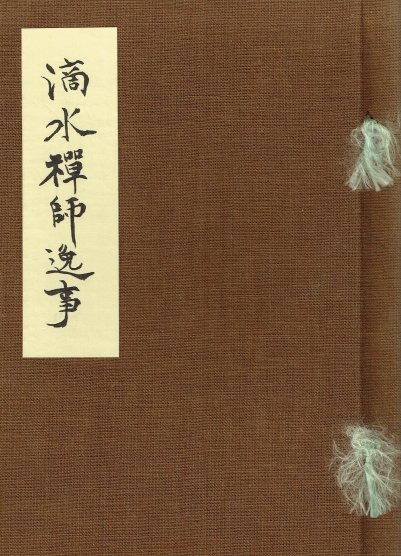 滴水禪師逸事